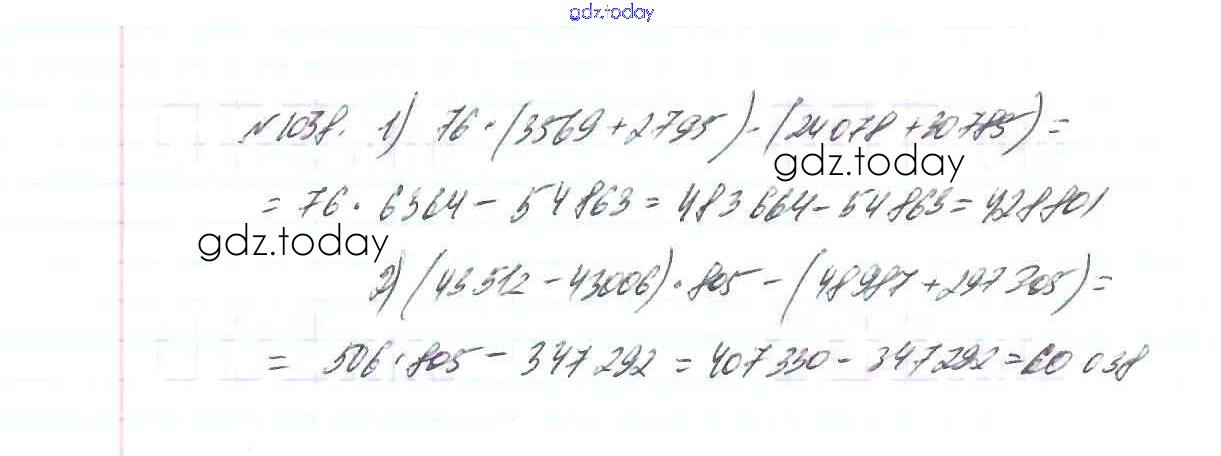 gdz.today
№1038. 1) 76·(3569+2795)-(24078+30785)=
gdz.today
= 76·6364-54863=483664-54863=428801
gdz.today
2) (43512-43006)·805-(48987+297305)=
= 506·805-347292=407330-347292=60038